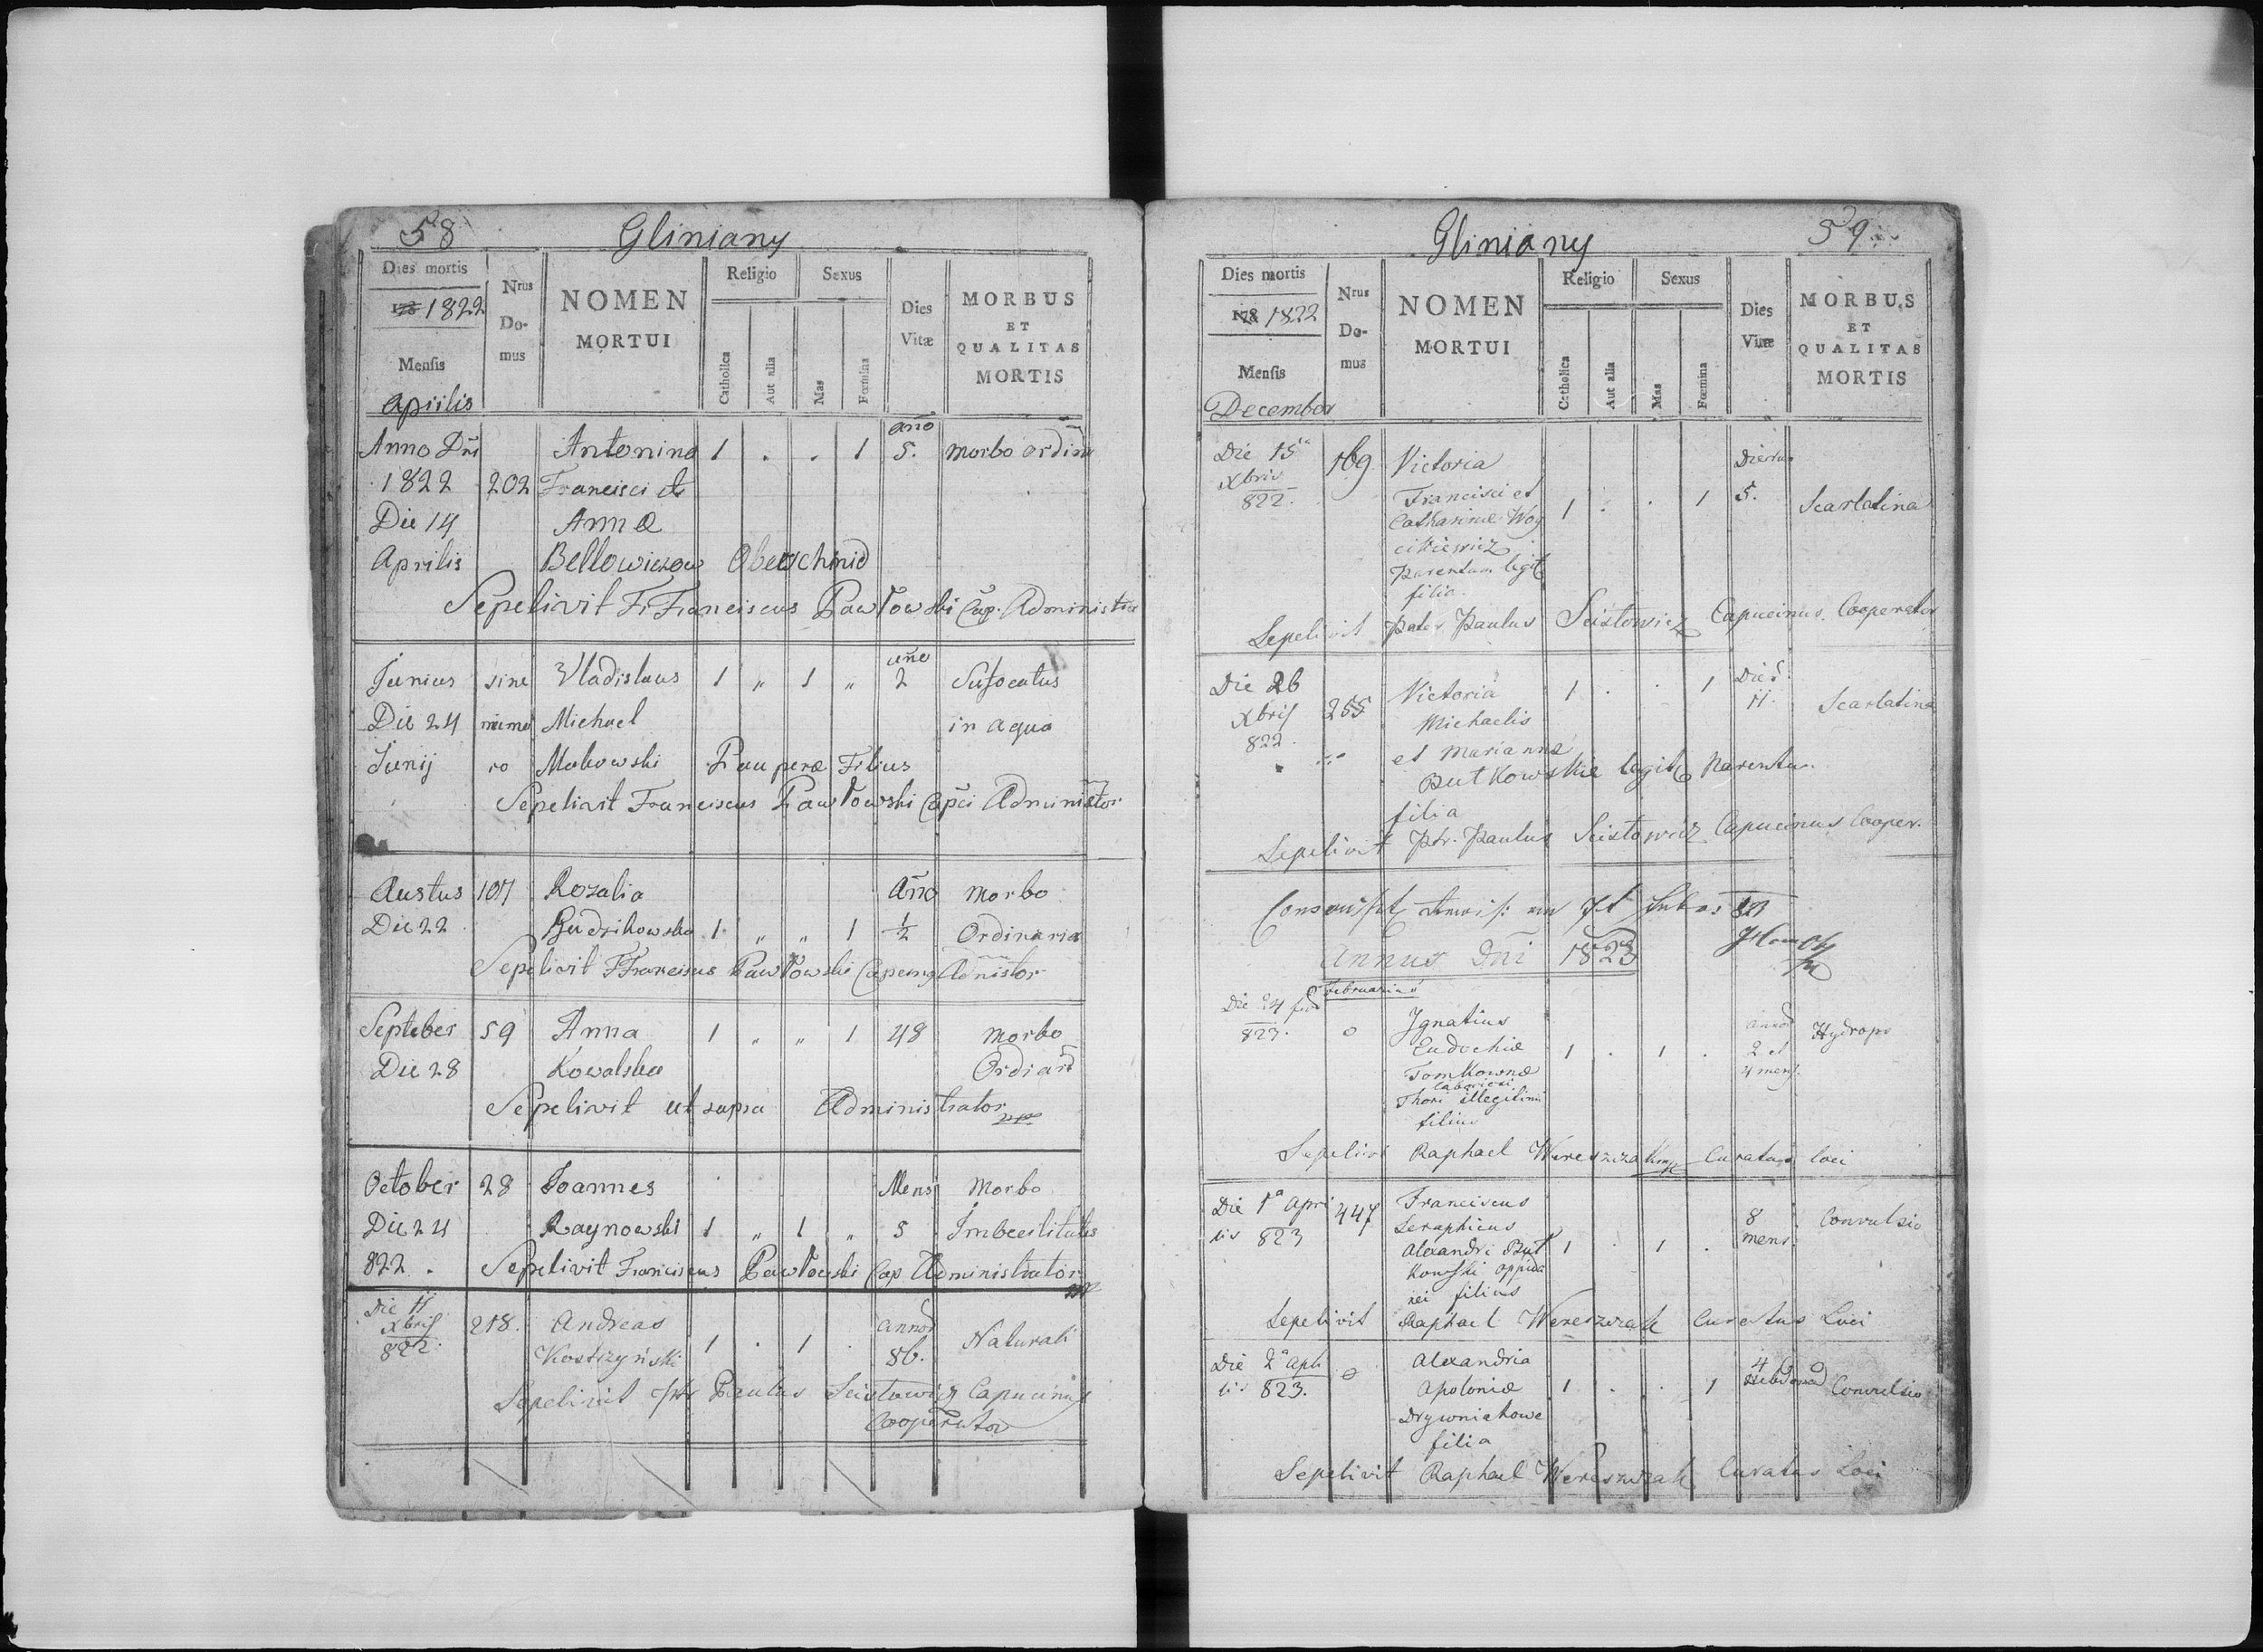 58 Gliniany
Dies mortis
178 1822
Mensis
Apiilis
Nrus
Do-
mus
NOMEN
MORTUI
Religio
Catholica
Aut alia
Sexus
Mas
Fœmina
Dies
Vitæ
MORBUS
ET
QUALITAS
MORTIS
Anno Dni Antonina 1 . . 1 año 5. Morbo ordina
1822 202 Francisci et
Die 14 Anna
Aprilis Bellowiczow
Sepelivit Fr Franciscus Pawłowski Cap. Administra
Junius sine Vladislaus 1 " 1 " año 2 Sufocatus
Die 24 nume Michael in aqua
Junij ro Makowski Pauperæ Filius
Sepelivit Franciscus Pawłowski Capci Administor
Austus 107 Rozalia Año Morbo
Die 22 1 " " 1 ½ Ordinaria
Sepelivit F Franciscus Pawłowski Adnistor
Septeber 59 Anna 1 " " 1 48 Morbo
Die 28 Kowalska Ordiari
Sepelivit ut supra Administrator
October 28 Joannes Mens Morbo
Die 24 Raynowski 1 " 1 " 5 Imbecilitatis
822. Sepelivit Franciscus Pawłowski Cap Administrator
Die 11
Xbris 218. Andreas 1 . 1 . annor Naturali
822. Kostrzyński 86.
Sepelivit Paulus Scistowicz Capucinus
Cooperator
Gliniany 59
Dies mortis
178 1822
Mensis
December
Nrus
Do-
mus
NOMEN
MORTUI
Religio
Catholica
Aut alia
Sexus
Mas
Fœmina
Dies
Vitæ
MORBUS
ET
QUALITAS
MORTIS
Die 15 169 Victoria Dierum
Xbris Francisci et 1 . . 1 5. Scarlatina
822. Catharinæ Woy
cikiewicz
Parentum legit
filia.
Sepelivit Pater Paulus Scistowicz Capucinus. Cooperator
Die 26 Victoria 1 . . 1 Die
Xbris 255 Michaelis 11. Scarlatina
822. et Marianna
Butkowskie legit Parentu.
filia
Sepelivit Ptr. Paulus Scistowicz Capucinus Cooper.
Annus Dni 1823
Februarius
Die 24
823. 0 Ignatius annor Hydrops
Eudochiæ 1 . 1 . 2 et
Tomkownæ 4 mens.
illegitimi
filius
Sepelivi Raphael Wereszczak Curatus Loci
Die 1a Apri 447 Franciscus
lis 823 Seraphicus 8 Convulsio
Alexandri But 1 . 1 . mens.
kowski oppida
nei filius
Sepelivit Raphael Wereszczak Curatus Loci
Die 2a Apri 0 Alexandria 4
lis 823. Apoloniæ 1 . . 1 Hebdomad Convulsio
Drywniakowe
filia
Sepelivit Raphael Wereszczak Curatus Loci